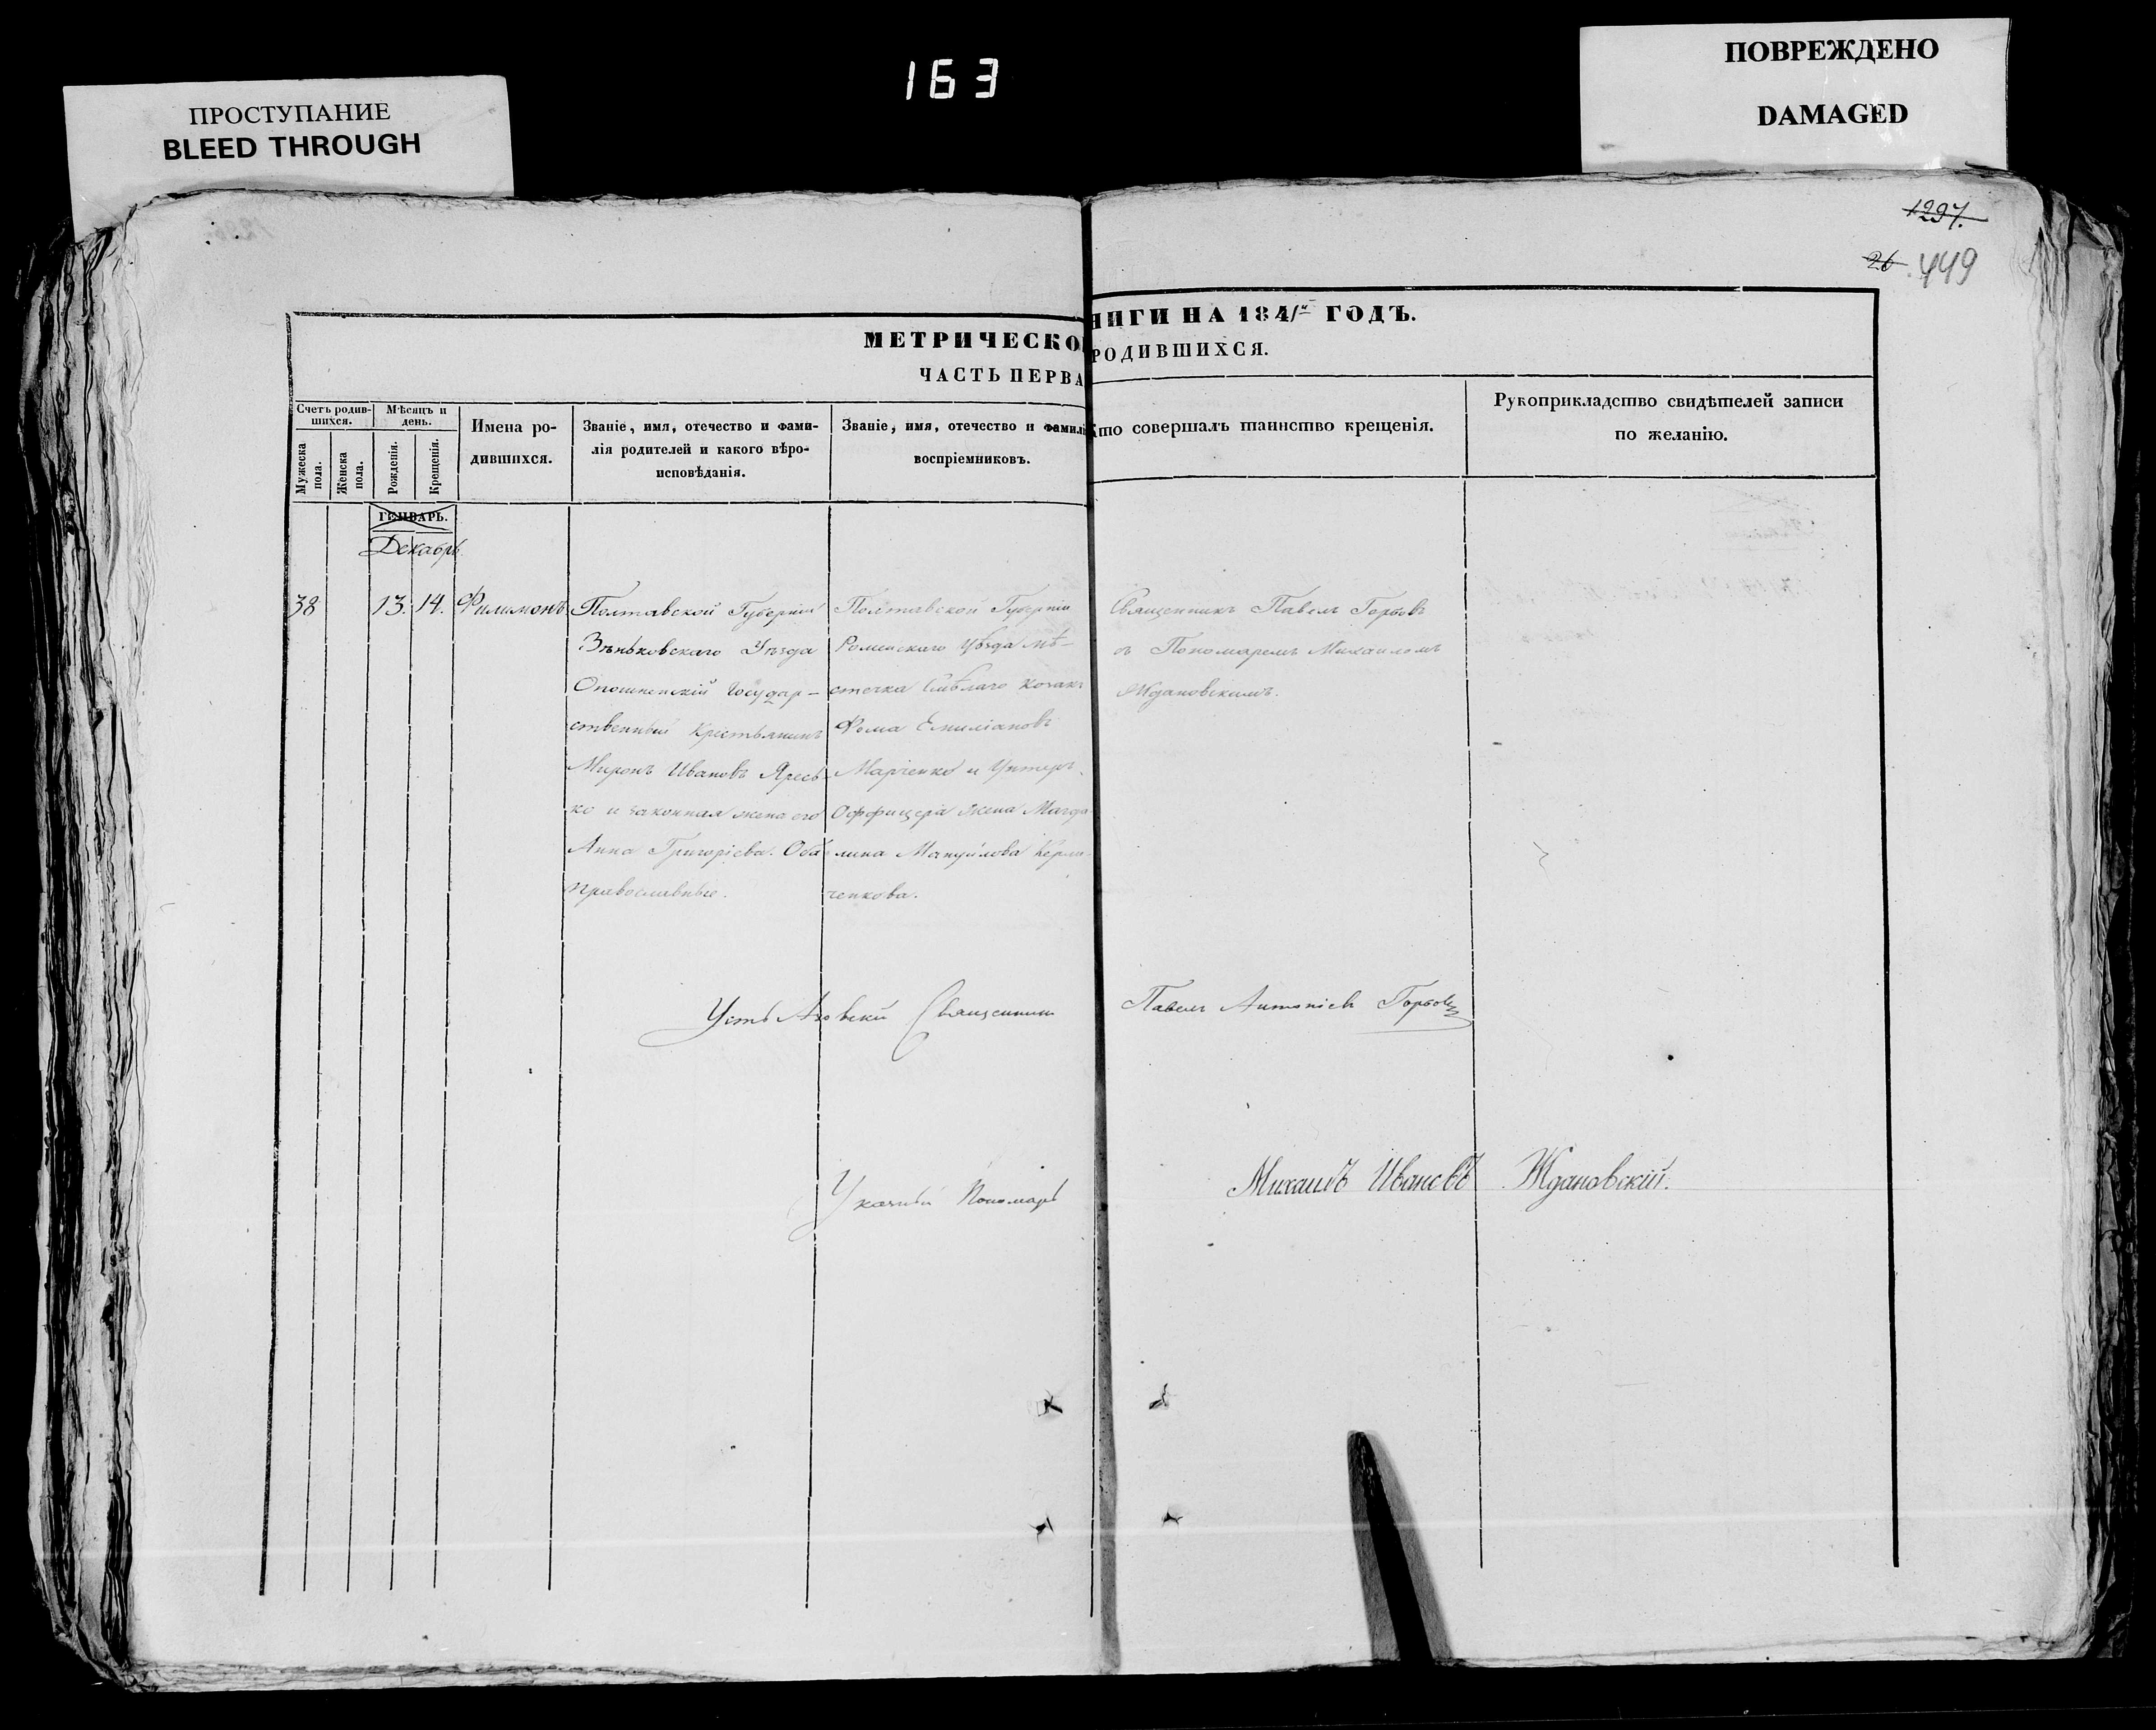 163
ПРОСТУПАНИЕ
BLEED THROUGH
ПОВРЕЖДЕНО
DAMAGED
1297.
26 449
МЕТРИЧЕСКО
НИГИ НА 1841 ГОДЪ.
ЧАСТЬ ПЕРВА
РОДИВШИХСЯ.
Счетъ родив-
шихся.
Мѣсяцъ и
день.
Мужеска
пола.
Женска
пола.
Рожденія.
Крещенія.
Имена ро-
дившихся.
Званіе, имя, отечество и фами-
лія родителей и какого вѣро-
исповѣданія.
Званіе, имя, отечество и фамилі
воспріемниковъ.
Кто совершалъ таинство крещенія.
Рукоприкладство свидѣтелей записи
по желанію.
ГЕНВАРЬ.
Декабрь
38
13. 14.
Филимонъ
Полтавской Губерніи
Зѣньковскаго Уѣзда
Опошненскій Государ-
ственный Крестьянинъ
Миронъ Ивановъ Яресь-
ко и законная жена его
Анна Григоріева. Оба
православные.
Полтавской Губерніи
Роменскаго Уѣзда мѣ-
стечка Смѣлаго Козакъ
Фома Емиліановъ
Марченко и Унтеръ
Оффицера жена Магда
лина Мануйлова
ченкова.
Священникъ Павелъ Горбовъ
съ Пономаремъ Михаиломъ
Ждановскимъ.
Священникъ Павелъ Антоніевъ
Указный Пономарь Михаилъ Ивановъ Ждановскій.